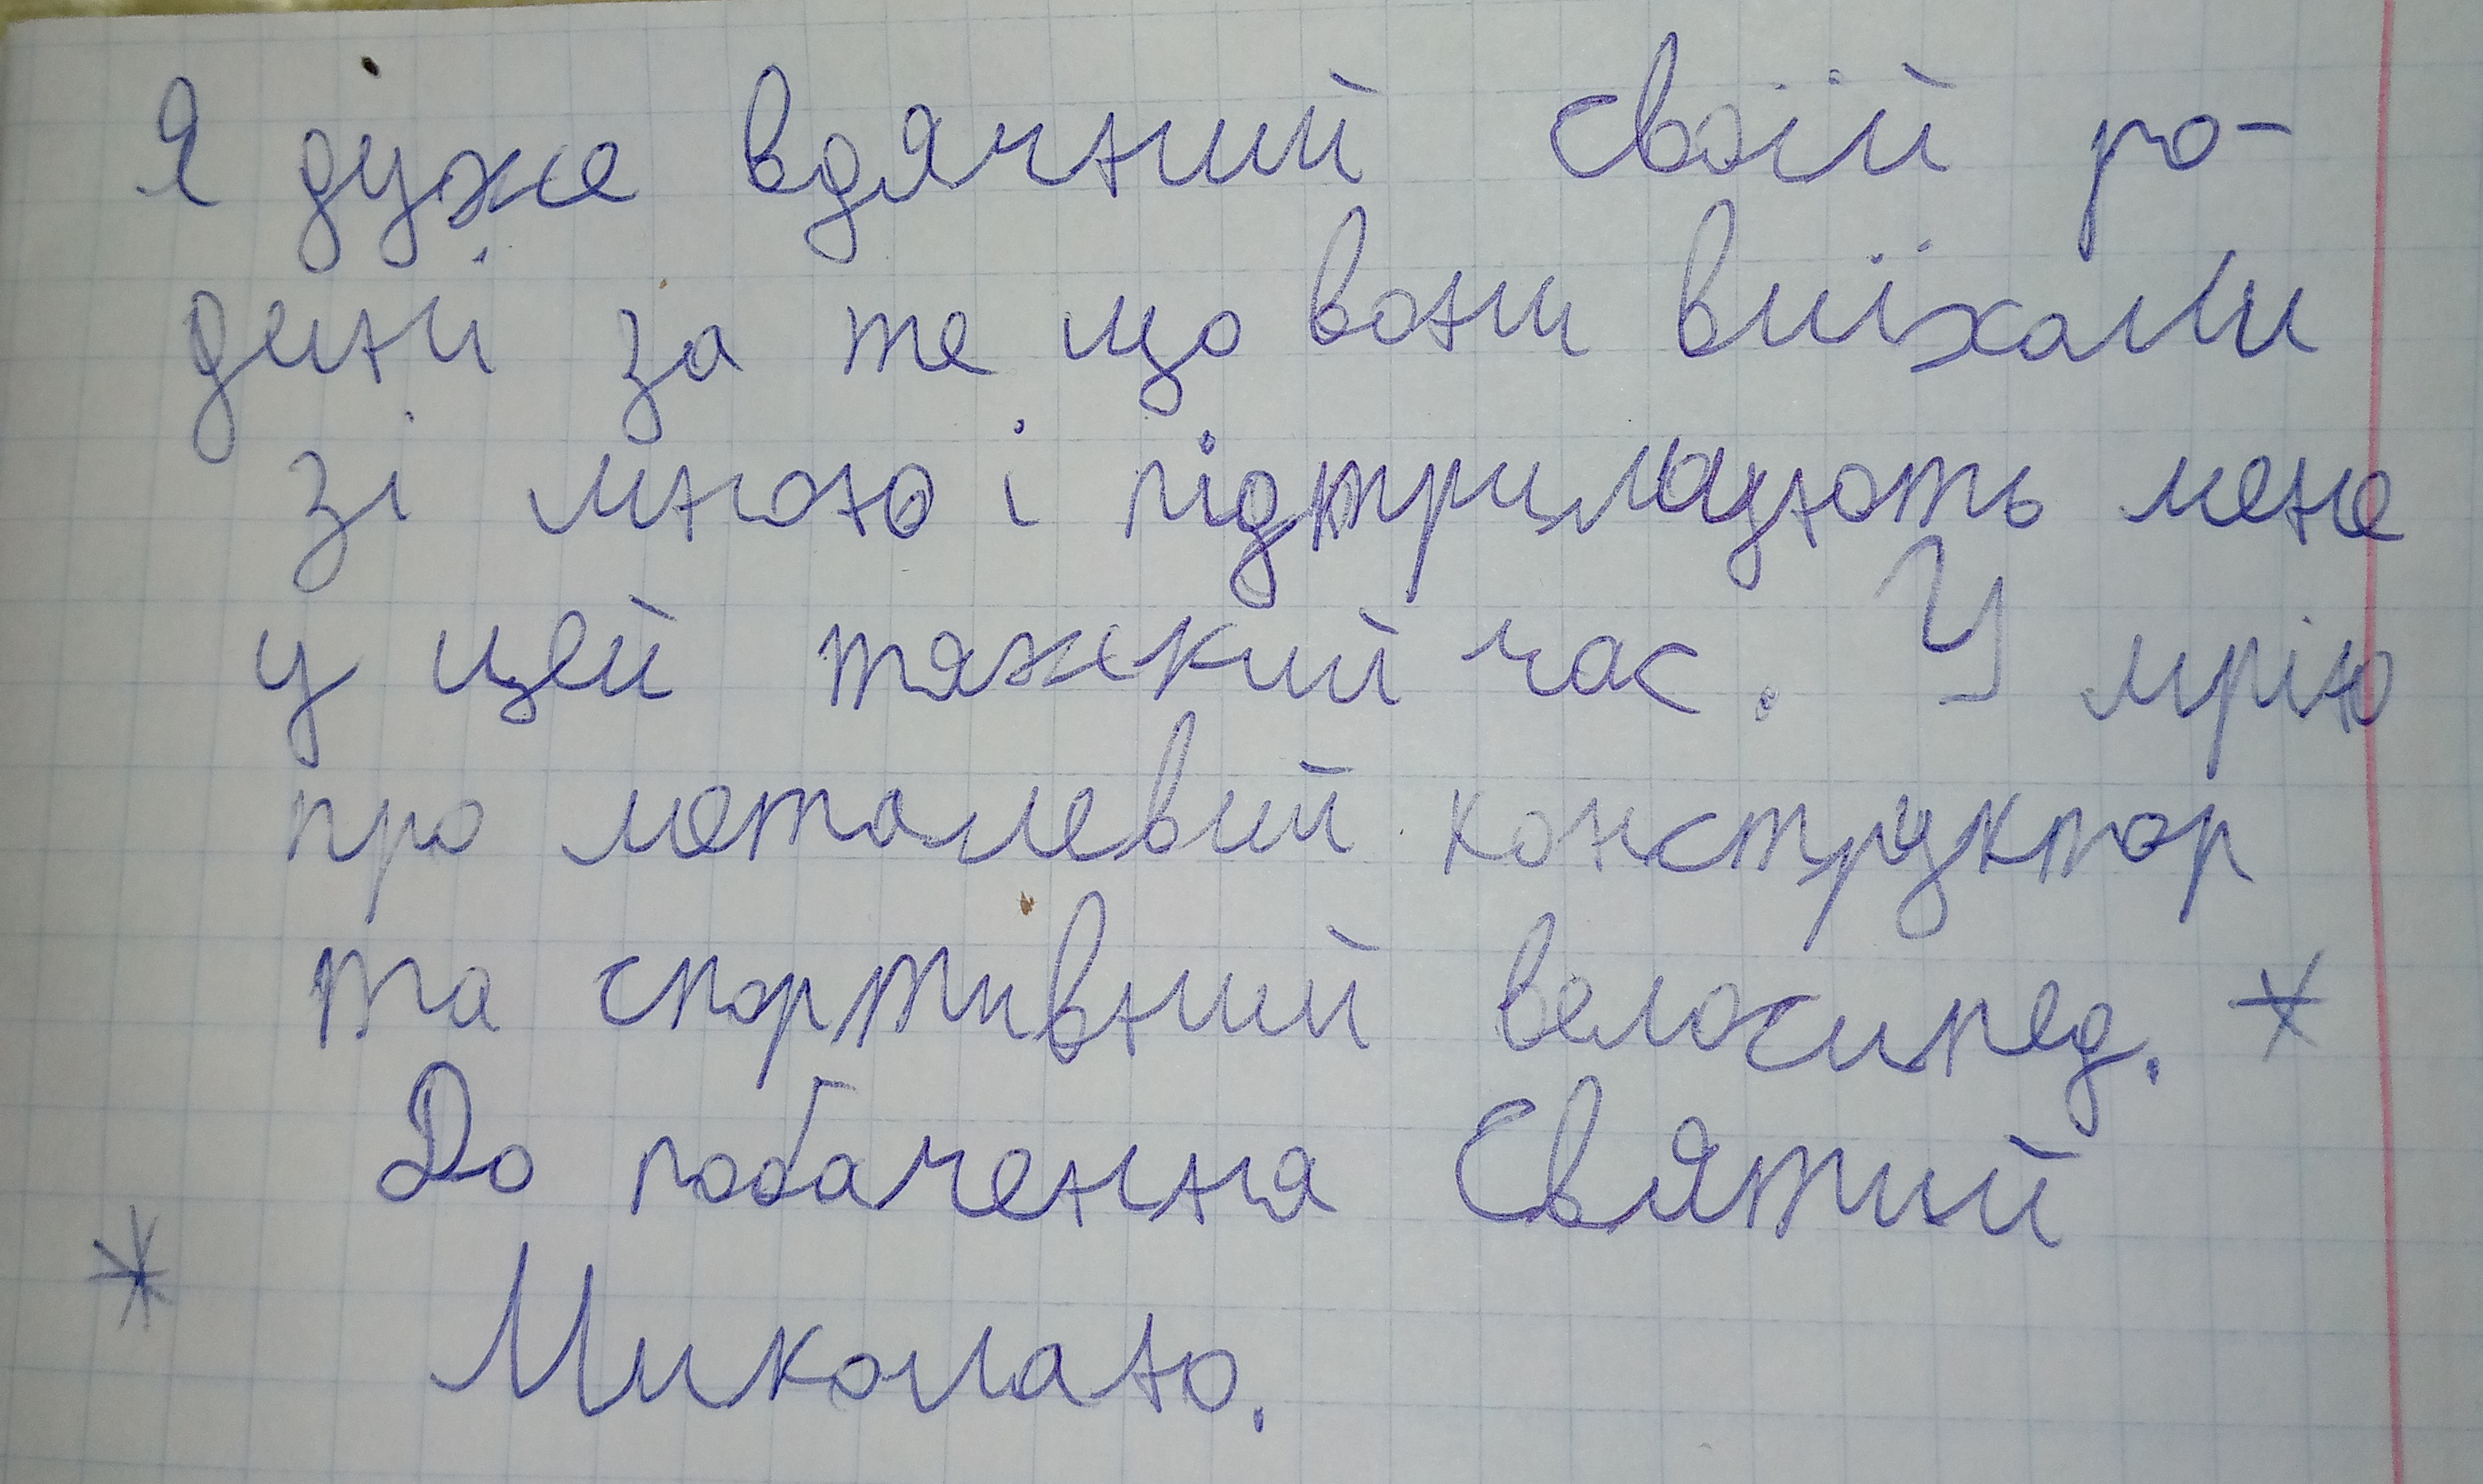 Я дуже вдячний своїй ро-
дині за те що вони виїхали
зі мною і підтримають мене
у цей тяжкий час. У мрію
про металевий конструктор
та спортивний велосипед. *
До побачення Святий
* Миколаю.